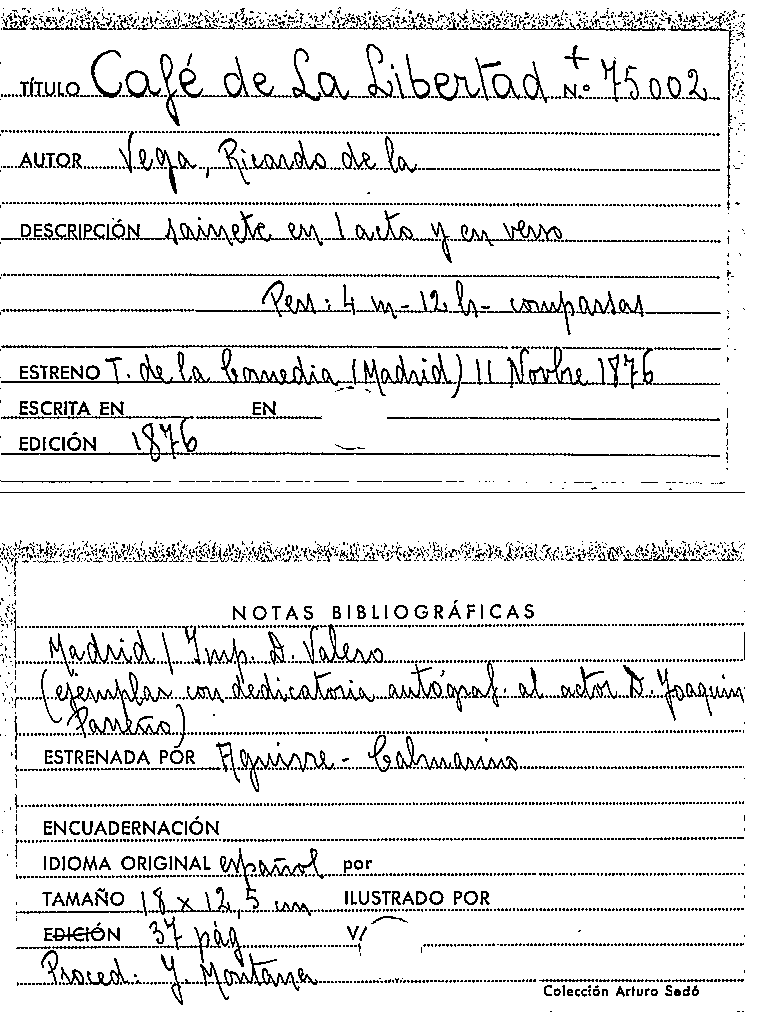 TÍTULO Café de La Libertad + N.º 75002
AUTOR Vega, Ricardo de la
DESCRIPCIÓN sainete en 1 acto y en verso
Pers: 4 m - 12 h - comparsas
ESTRENO T. de la Comedia (Madrid) 11 Novbre 1876
ESCRITA EN EN
EDICIÓN 1876
NOTAS BIBLIOGRÁFICAS
Madrid / Imp. D. Valero
(ejemplar con dedicatoria autógraf. al actor D. Joaquin
Parreño)
ESTRENADA POR Aguirre - Calmarino
ENCUADERNACIÓN
IDIOMA ORIGINAL español por
TAMAÑO 18 x 12,5 cm ILUSTRADO POR
EDICIÓN 37 pág V
Proced: Y. Montaner
Colección Arturo Sedó